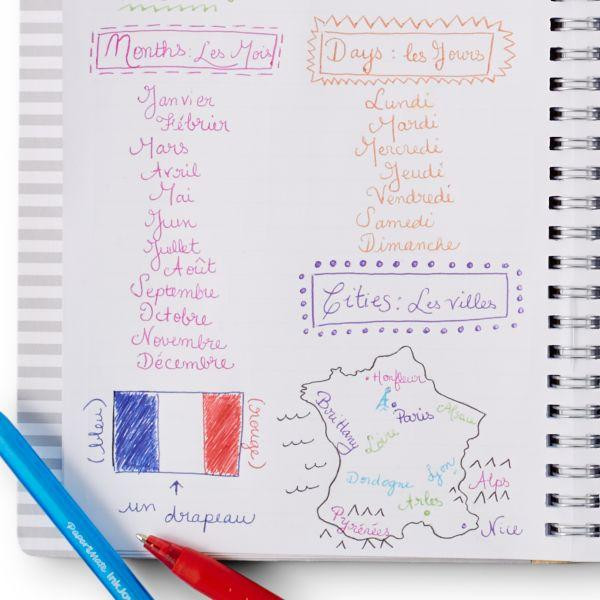 Months: Les Mois
Janvier
Fébrier
Mars
Avril
Mai
Jun
Juillet
Août
Septembre
Octobre
Novembre
Décembre
Days: les Jours
Lundi
Mardi
Mercredi
Jeudi
Vendredi
Samedi
Dimanche
Cities: Les villes
(bleu)
(rouge)
un drapeau
Honfleur
Brittany
Paris
Alsau
Loire
Dordogne
Lyon
Alps
Arles
Pyrénées
Nice
PaperMate InkJoy